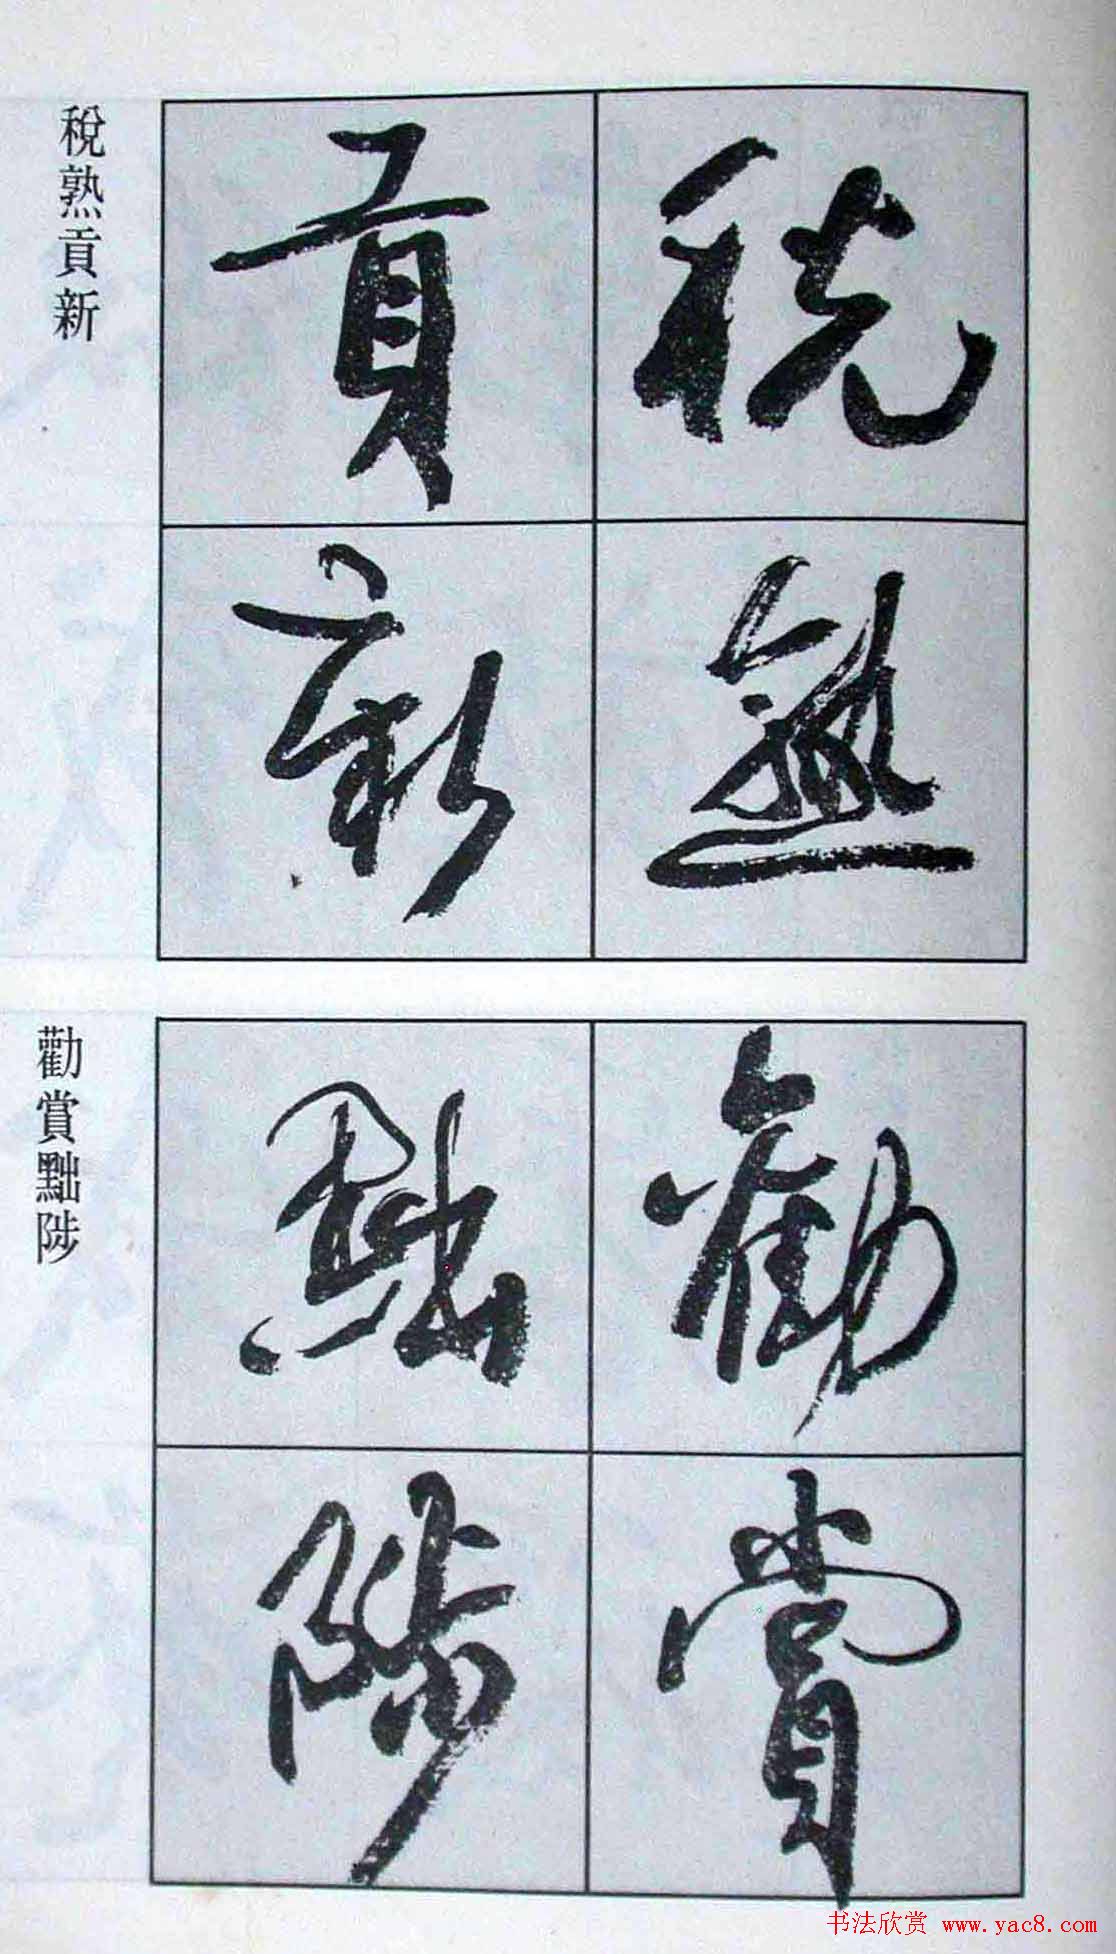 稅熟
貢新
稅熟貢新
勸賞
黜陟
勸賞黜陟
书法欣赏 www.yac8.com